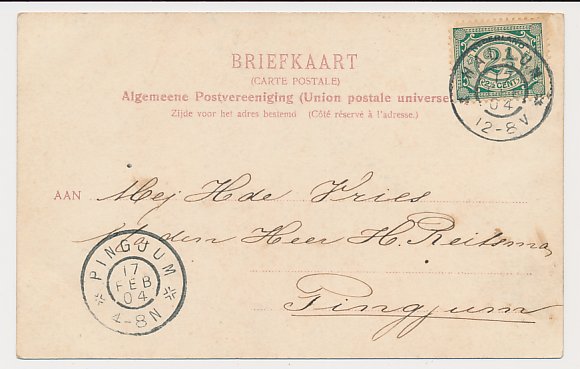 BRIEFKAART
(CARTE POSTALE)
Algemeene Postvereeniging (Union postale universe
Zijde voor het adres bestemd (Côté réservé à l'adresse.)
NEDERLAND
2½
2½ CENT
WADLUM
04
12-8V
AAN Mej H de Vries
den Heer H. Reitsma
Pingjum
PINGJUM
17
FEB
04
4-8N